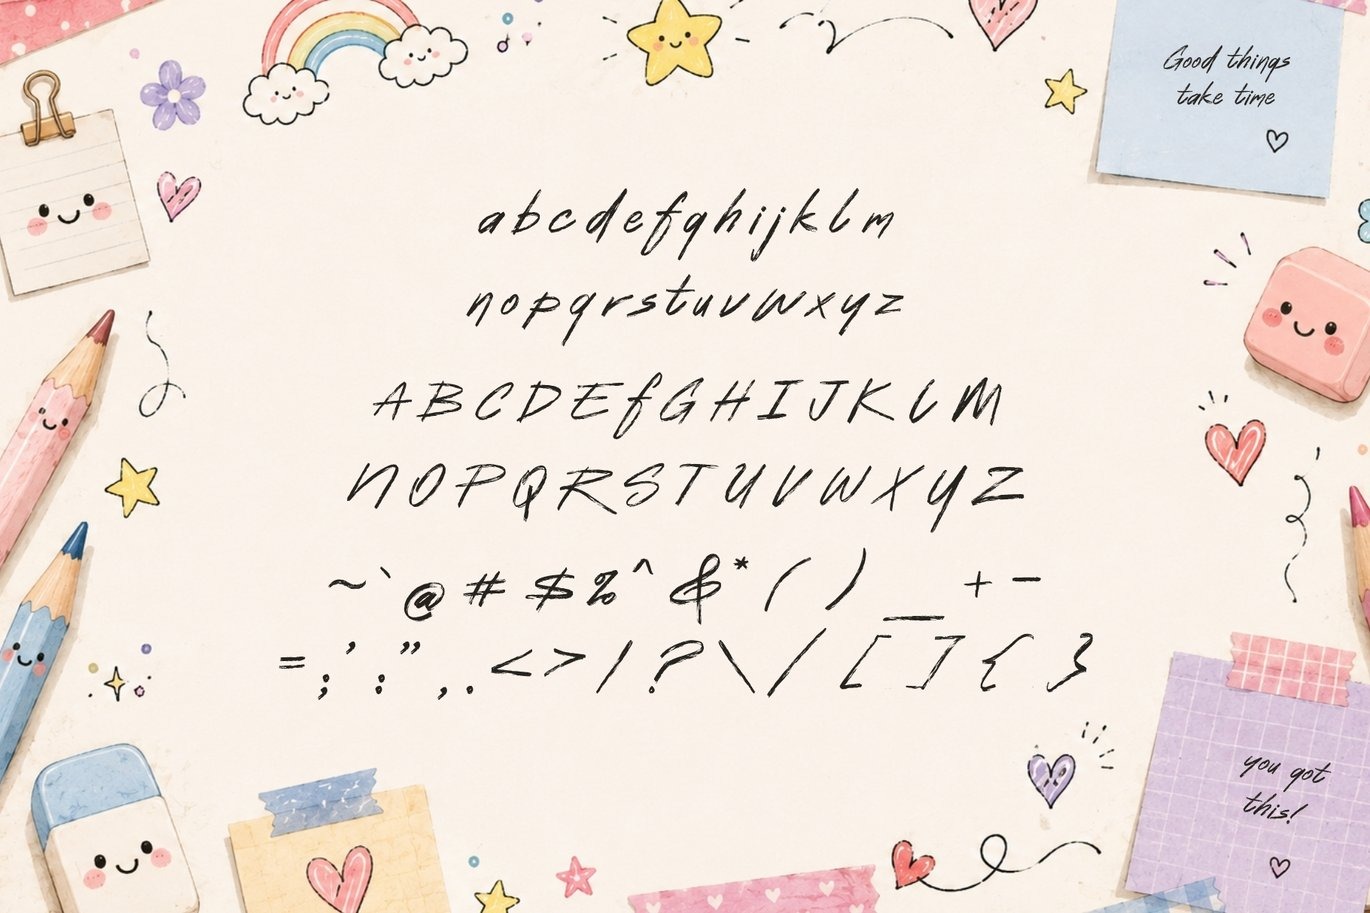 Good things
take time
abcdefghijklm
nopqrstuvwxyz
ABCDEfGHIJKLM
NOPQRSTUVWXYZ
~`@#$%^&*()_+-
=;':",.<>/?\/[]{}
you got
this!